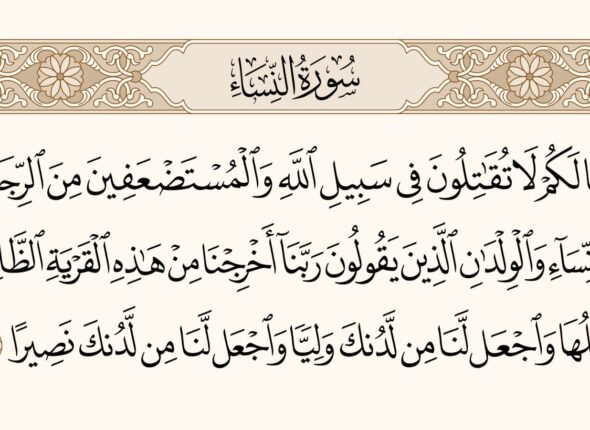 سُورَةُ النِّسَاءِ
لَكُمْ لَا تُقَٰتِلُونَ فِى سَبِيلِ ٱللَّهِ وَٱلْمُسْتَضْعَفِينَ مِنَ
وَٱلْوِلْدَٰنِ ٱلَّذِينَ يَقُولُونَ رَبَّنَآ أَخْرِجْنَا مِنْ هَٰذِهِ ٱلْقَرْيَةِ
وَٱجْعَل لَّنَا مِن لَّدُنكَ وَلِيًّا وَٱجْعَل لَّنَا مِن لَّدُنكَ نَصِيرًا